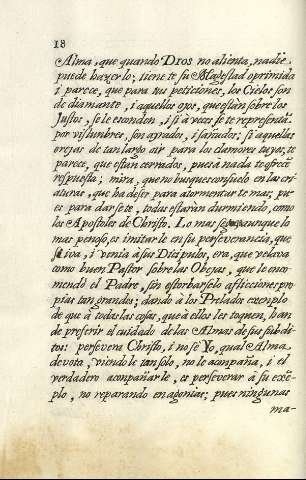 18
Alma, que quando DIOS no alienta, nadie
puede hazerlo; tiene te su Magestad oprimida
i parece, que para tus peticiones, los Cielos son
de diamante, i aquellos ojos, que estàn sobre los
Justos, se le esconden, i si à veses se te representã
por vislumbres, son ayrados, i sañudos; si aquellas
orejas de tan largo oir para los clamores tuyos, te
parece, que estàn cerrados, pues à nada te ofrecẽ
respuesta; mira, que no busques consuelo en las cri-
aturas, que ha deser para atormentarte mas, pu-
es para dar sete, todas estaràn durmiendo, como
los Apostoles de Christo. Lo mas seguro, aunque lo
mas penoso, es imitarle en su perseverancia, que
si iva, i venia à sus Discipulos, era, que velava
como buen Pastor sobre las Obejas, que le enco-
mendò el Padre, sin estorbarselo aflicciones pro-
pias tan grandes; dando à los Prelados exemplo
de que à todas las cosas, que à ellos les toquen, han
de preferir el cuidado de las Almas de sus subdi-
tos: persevera Christo, i no sè Yo, qual Alma
devota, viendole tan solo, no le acompaña, i el
verdadero acompañarle, es perseverar à su exẽ-
plo, no reparando en agonias; pues ningunas
ma-